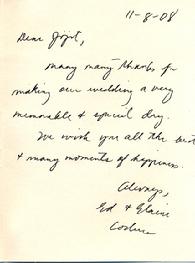 11-8-08
Dear
many many thanks for
making our wedding a very
memorable & special day.
We wish you all the best
& many moments of happiness.
Always,
Ed & Elaine